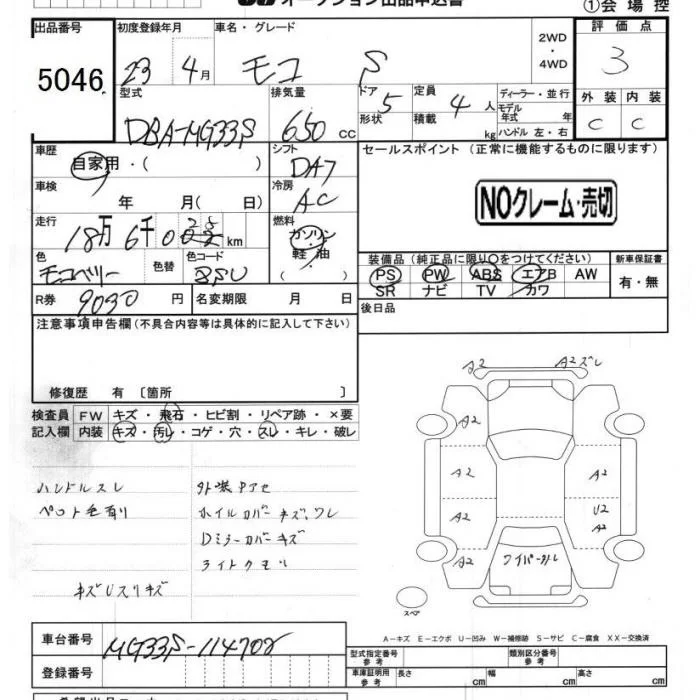 オークション出品申込書
①会場控
出品番号
5046
初度登録年月
23 4月
車名・グレード
モコ S
2WD
・
4WD
評価点
3
外装 内装
C C
型式
DBA-MG33S
排気量
650 cc
ドア 5
形状
定員 4 人
積載 kg
ディーラー・並行
モデル
年式 年
ハンドル 左・右
車歴
自家用・( )
シフト
DA7
車検
年 月( 日)
冷房
AC
走行
18万 6千 0 km
燃料
ガソリン
・
軽油
・
( )
色
モコベリー
色替
色コード
R券
9030 円
名変期限 月 日
セールスポイント (正常に機能するものに限ります)
NOクレーム・売切
装備品 (純正品に限り○をつけてください)
PS PW ABS エアB AW
SR ナビ TV カワ
新車保証書
有・無
後日品
注意事項申告欄 (不具合内容等は具体的に記入して下さい)
修復歴 有 〔箇所 〕
検査員
記入欄
FW キズ・飛石・ヒビ割・リペア跡・×要
内装 キズ・汚レ・コゲ・穴・スレ・キレ・破レ
ハンドルスレ
ペット毛有り
キズUスリキズ
外装P アセ
ホイルカバーキズ、ワレ
Dミラーカバーキズ
ライトクモリ
A2
A2ズレ
A2
A2
A2
A2
A2
U2
A2
ワイパー
スペア
A−キズ E−エクボ U−凹み W−補修跡 S−サビ C−腐食 XX−交換済
車台番号
MG33S-114702
登録番号
型式指定番号
参考
類別区分番号
参考
車庫証明用
参考
長さ cm
幅 cm
高さ cm